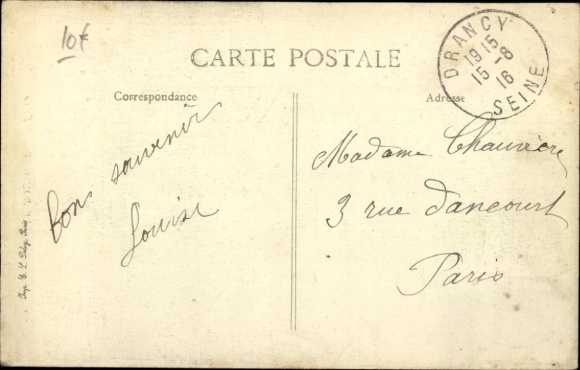 10f
CARTE POSTALE
DRANCY
19 15
15 - 8
16
SEINE
Correspondance
Adresse
Bons souvenir
Louise
Madame Chauvière
3 rue Dancourt
Paris